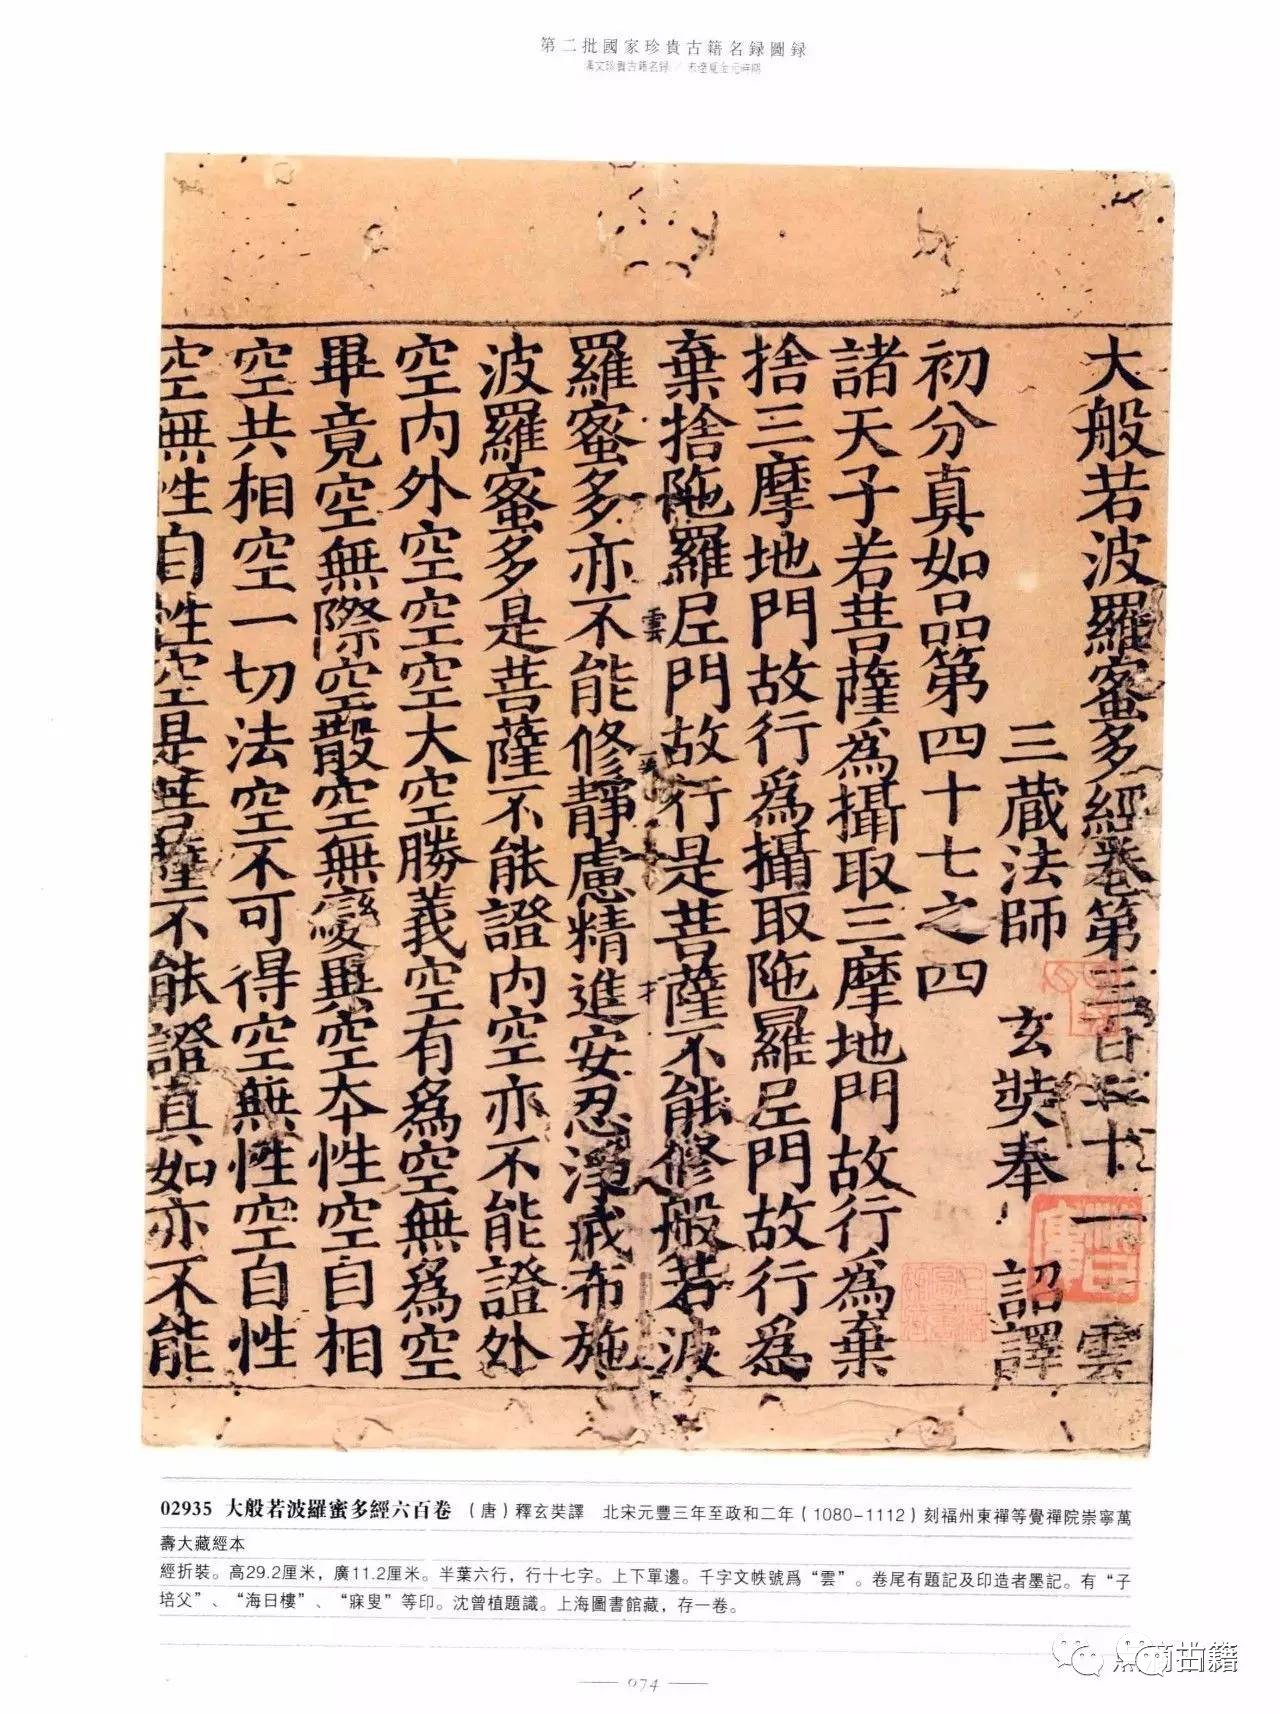 第二批國家珍貴古籍名録圖録
漢文珍貴古籍名録 / 宋遼夏金元時期
大般若波羅蜜多經卷第三百二十一 雲
三藏法師 玄奘奉 詔譯
初分真如品第四十七之四
諸天子若菩薩爲攝取三摩地門故行爲棄
捨三摩地門故行爲攝取陁羅尼門故行爲
棄捨陁羅尼門故行是菩薩不能修般若波
雲
羅蜜多亦不能修靜慮精進安忍淨戒布施
波羅蜜多是菩薩不能證内空亦不能證外
空内外空空空大空勝義空有爲空無爲空
畢竟空無際空散空無變異空本性空自相
空共相空一切法空不可得空無性空自性
空無性自性空是菩薩不能證真如亦不能
02935 大般若波羅蜜多經六百卷 （唐）釋玄奘譯 北宋元豐三年至政和二年（1080-1112）刻福州東禪等覺禪院崇寧萬
壽大藏經本
經折裝。高29.2厘米，廣11.2厘米。半葉六行，行十七字。上下單邊。千字文帙號爲“雲”。卷尾有題記及印造者墨記。有“子
培父”、“海日樓”、“寐叟”等印。沈曾植題識。上海圖書館藏，存一卷。
074